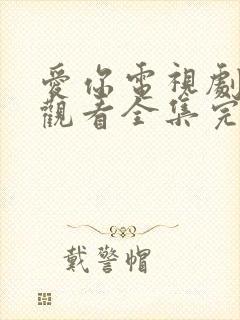 愛你電視劇
觀看全集完
戴警帽